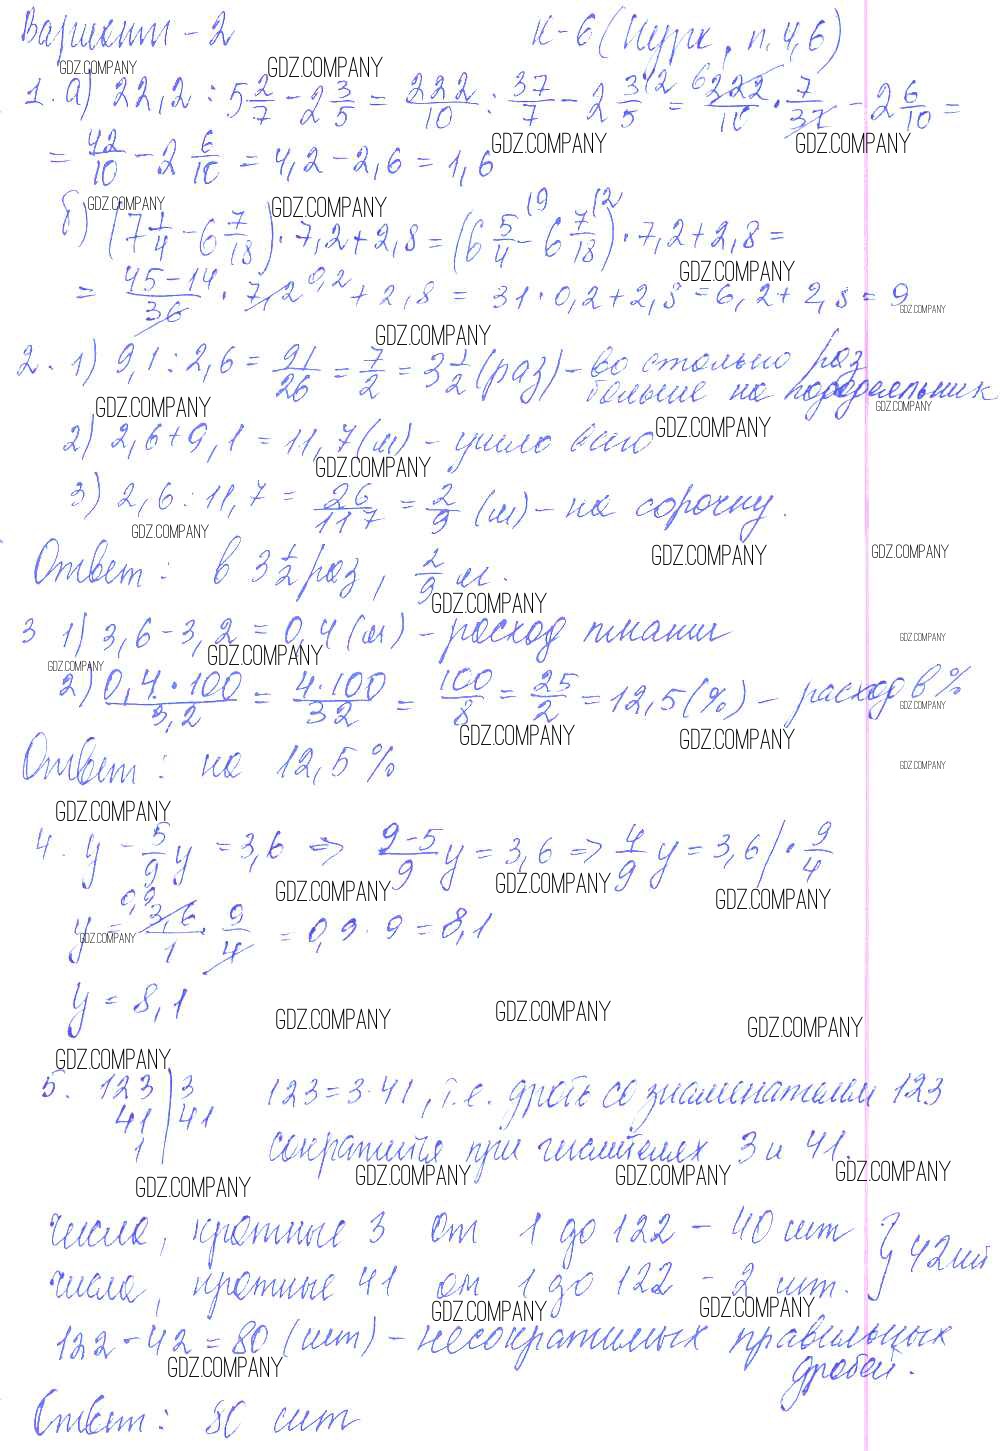 Вариант - 2 К-6 (Нурк, п. 4,6)
1. а) 22,2 : 5 2/7 - 2 3/5 = 222/10 : 37/7 - 2 3/5 = 222/10 · 7/37 - 2 6/10 =
= 42/10 - 2 6/10 = 4,2 - 2,6 = 1,6
б) (7 1/4 - 6 7/18) · 7,2 + 2,8 = (6 5/4 - 6 7/18) · 7,2 + 2,8 =
= 45-14/36 · 7,2 + 2,8 = 31 · 0,2 + 2,8 = 6,2 + 2,8 = 9
2. 1) 9,1 : 2,6 = 91/26 = 7/2 = 3 1/2 (раз) - во столько раз
больше на пододеяльник
2) 2,6 + 9,1 = 11,7 (м) - ушло всего
3) 2,6 : 11,7 = 26/117 = 2/9 (м) - на сорочку.
Ответ: в 3 1/2 раз, 2/9 м.
3 1) 3,6 - 3,2 = 0,4 (м) - расход ткани
2) 0,4 · 100/3,2 = 4 · 100/32 = 100/8 = 25/2 = 12,5 (%) - расход в %
Ответ: на 12,5 %
4. y - 5/9 y = 3,6 => 9-5/9 y = 3,6 => 4/9 y = 3,6 | · 9/4
y = 3,6/1 · 9/4 = 0,9 · 9 = 8,1
y = 8,1
5. 123 | 3 123 = 3 · 41, т.е. дробь со знаменателем 123
41 | 41
1 | сократится при числителях 3 и 41.
числа, кратные 3 от 1 до 122 - 40 шт
числа, кратные 41 от 1 до 122 - 2 шт. } 42 шт
122 - 42 = 80 (шт) - несократимых правильных
дробей.
Ответ: 80 шт
GDZ.COMPANY